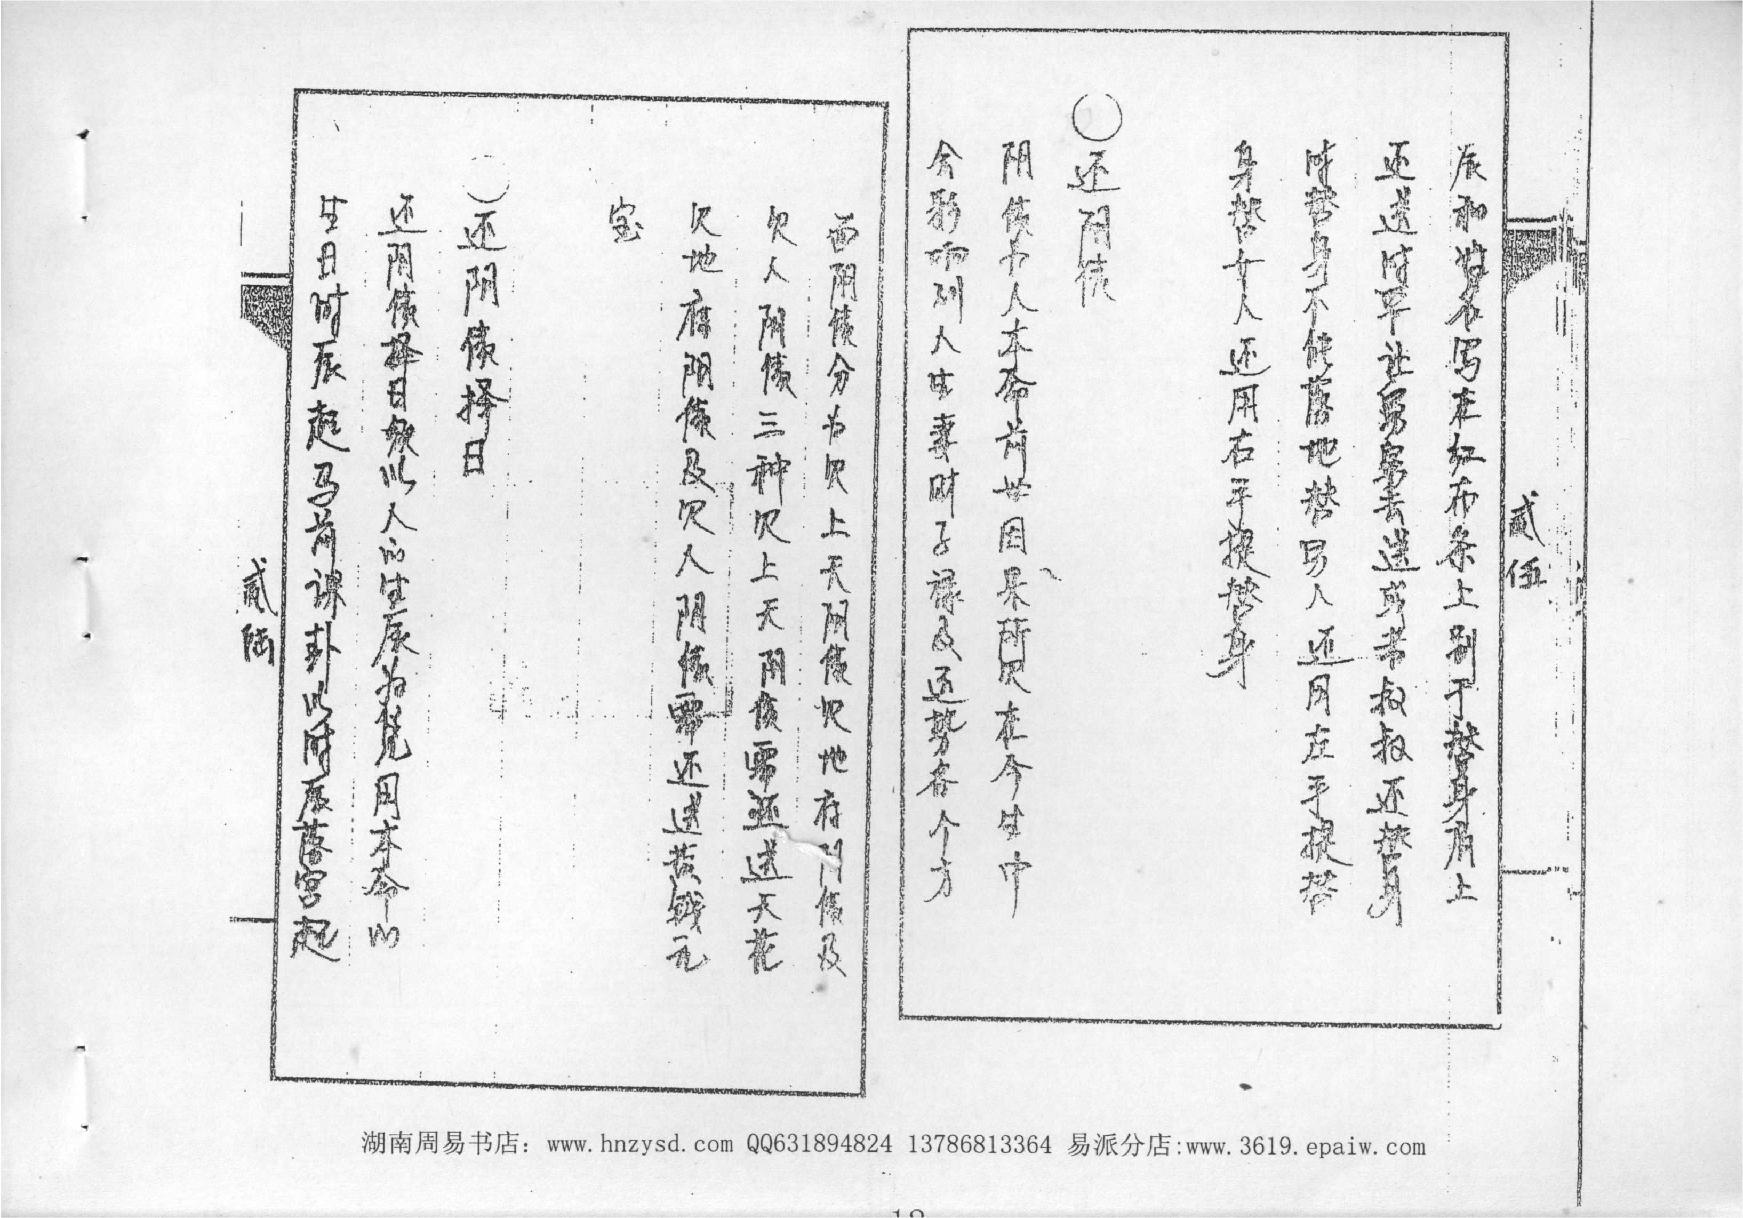 辰和姓名写在红布条上别于替身肩上
还送时早让舅舅去送或者叔叔还替身
时替身不能落地替男人还用左手提替
身替女人还用右手提替身
○还阴债
阴债为人本命前世因果所欠在今生中
会影响到人生妻财子禄及运势各个方
贰伍
面阴债分为欠上天阴债欠地府阴债及
欠人阴债三种欠上天阴债需还送天花
欠地府阴债及欠人阴债需还送黄钱元
宝
○还阴债择日
还阴债择日然以人的生辰为凭用本命的
生日时辰起马前课卦以时辰落宫起
贰陆
湖南周易书店：www.hnzysd.com QQ631894824 13786813364 易派分店:www.3619.epaiw.com